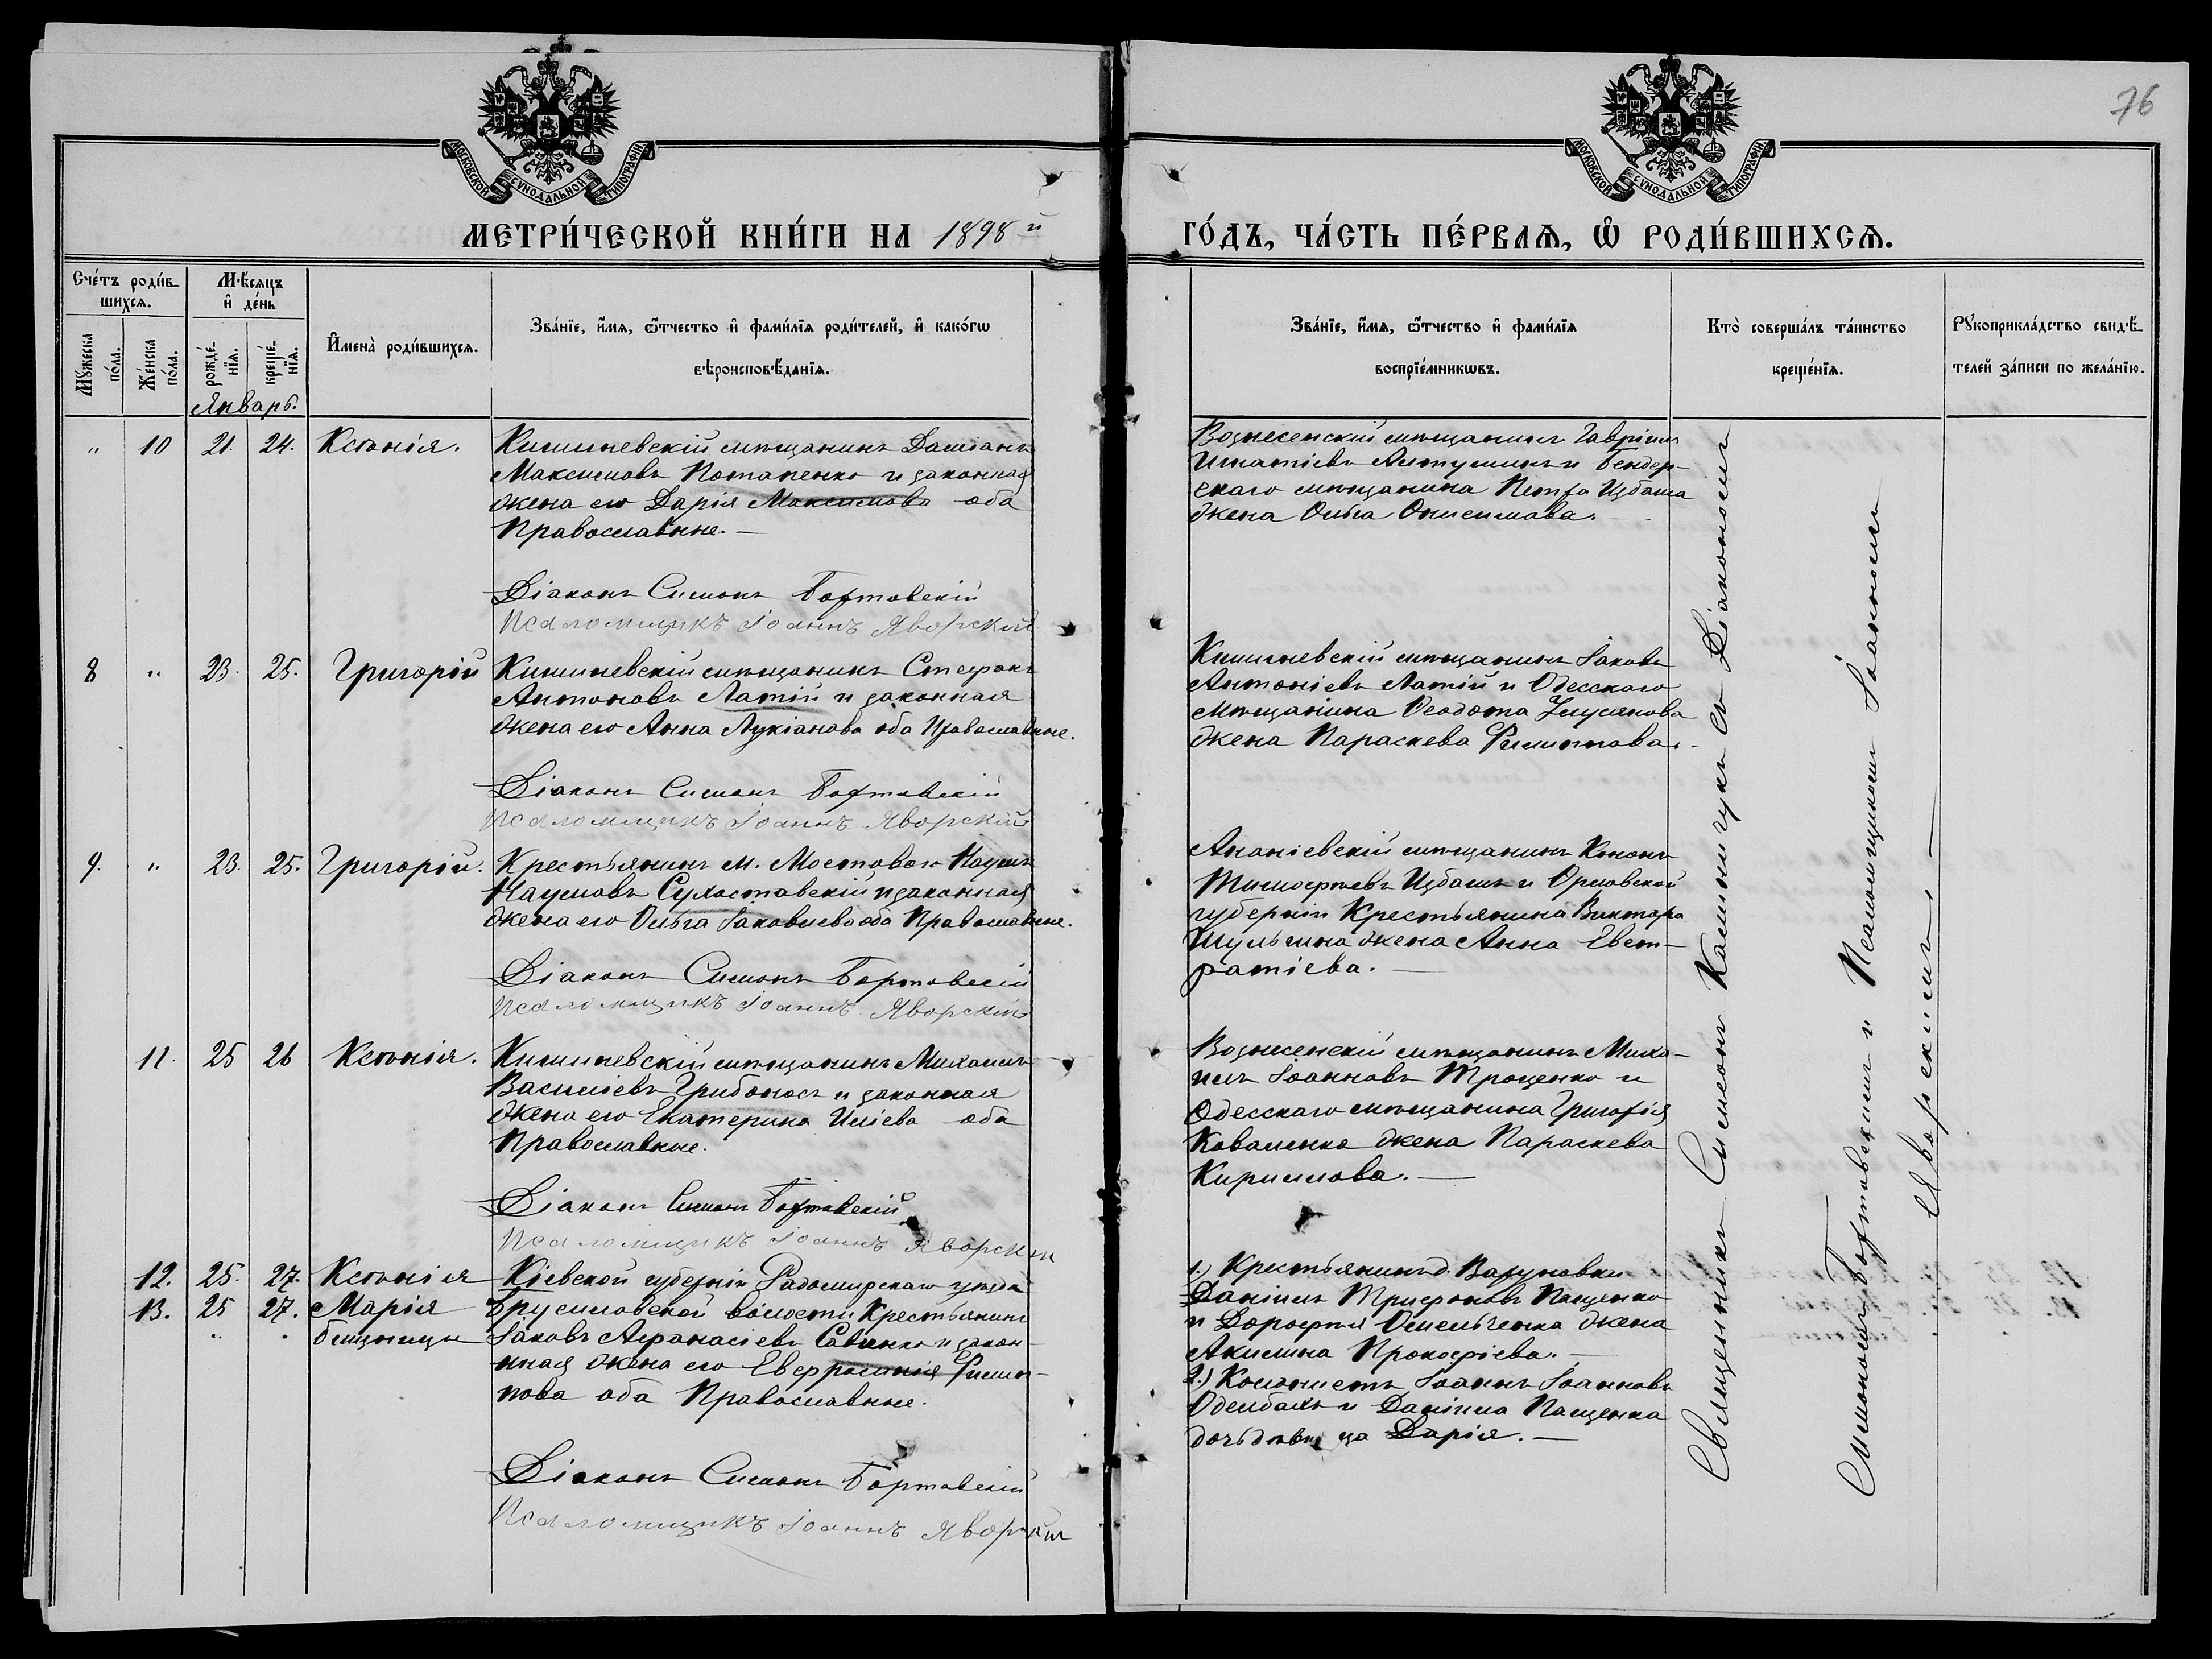 76
МОСКОВСКОЙ СѴНОДАЛЬНОЙ ТИПОГРАФІИ
МОСКОВСКОЙ СѴНОДАЛЬНОЙ ТИПОГРАФІИ
МЕТРИ́ЧЕСКОЙ КНИ́ГИ НА 1898й
ГО́ДЪ, ЧА́СТЬ ПЕ́РВАѦ, Ѡ РОДИ́ВШИХСѦ.
Сче́тъ роди́в-
шихсѧ.
Мꙋ́жеска
по́ла.
Же́нска
по́ла.
Мѣ́сѧцъ
и҆ де́нь
рожде́-
нїѧ.
креще́-
нїѧ.
Январь.
И҆мена̀ роди́вшихсѧ.
Зва́нїе, и҆́мѧ, ѻ҆́тчество и҆ фами́лїѧ роди́телей, и҆ како́гѡ
вѣроисповѣ́данїѧ.
Зва́нїе, и҆́мѧ, ѻ҆́тчество и҆ фами́лїѧ
воспрїе́мникѡвъ.
Кто̀ соверша́лъ та́инство
креще́нїѧ.
Рꙋкоприкла́дство свидѣ́-
телей за́писи по жела́нїю.
" 10 21. 24. Ксенія.
Кишиневскій мѣщанинъ Даміанъ
Максимовъ Потапенко и законная
жена его Дарія Максимова оба
Православные. —
Діаконъ Симонъ Бортовскій
Псаломщикъ Іоаннъ Яворскій
Вознесенскій мѣщанинъ Гавріилъ
Игнатіевъ и Бендер-
скаго мѣщанина Петра Избаша
жена Ольга Онисимова.
8 " 23. 25. Григорій
Кишиневскій мѣщанинъ Стефанъ
Антоновъ Латій и законная
жена его Анна Лукіанова оба Православные.
Діаконъ Симонъ Бортовскій
Псаломщикъ Іоаннъ Яворскій
Кишиневскій мѣщанинъ Іаковъ
Антоніевъ Латій и Одесскаго
мѣщанина Ѳеодота
жена Параскева Филиппова.
9. " 23. 25. Григорій.
Крестьянинъ м. Мостоваго Наумъ
Наумовъ Сухоставскій и законная
жена его Ольга Іаковлева оба Православные.
Діаконъ Симонъ Бортовскій
Псаломщикъ Іоаннъ Яворскій
Ананіевскій мѣщанинъ Кононъ
Тимоѳеевъ Избашъ и Орловской
губерніи Крестьянина Виктора
Шульгина жена Анна Евст-
ратіева. —
11. 25 26 Ксенія.
Кишиневскій мѣщанинъ Михаилъ
Василіевъ Грибоносъ и законная
жена его Екатерина Иліева оба
Православные.
Діаконъ Симонъ Бортовскій
Псаломщикъ Іоаннъ Яворскій
Вознесенскій мѣщанинъ Миха-
илъ Іоанновъ Троценко и
Одесскаго мѣщанина Григорія
Коваленко жена Параскева
Кириллова. —
12. 25. 27. Ксенія
13. 25 27. Марія
" " близнецы
Кіевской губерніи Радомырскаго уѣзда
Брусиловской волости Крестьянинъ
Іаковъ Аѳанасіевъ Савенко и закон-
ная жена его Евфросинія Филип-
пова оба Православные.
Діаконъ Симонъ Бортовскій
Псаломщикъ Іоаннъ Яворскій
1.) Крестьянинъ д. Варуновки
Даніилъ Трифоновъ Пащенко
и Дороѳея Омельченка жена
Акилина Прокофіева. —
2.) Колонистъ Іоаннъ Іоанновъ
и Даніила Пащенка
дочь дѣвица Дарія. —
Священникъ Симеонъ съ Діакономъ
Симономъ Бортовскимъ и Псаломщикомъ Іоанномъ
Яворскимъ. —